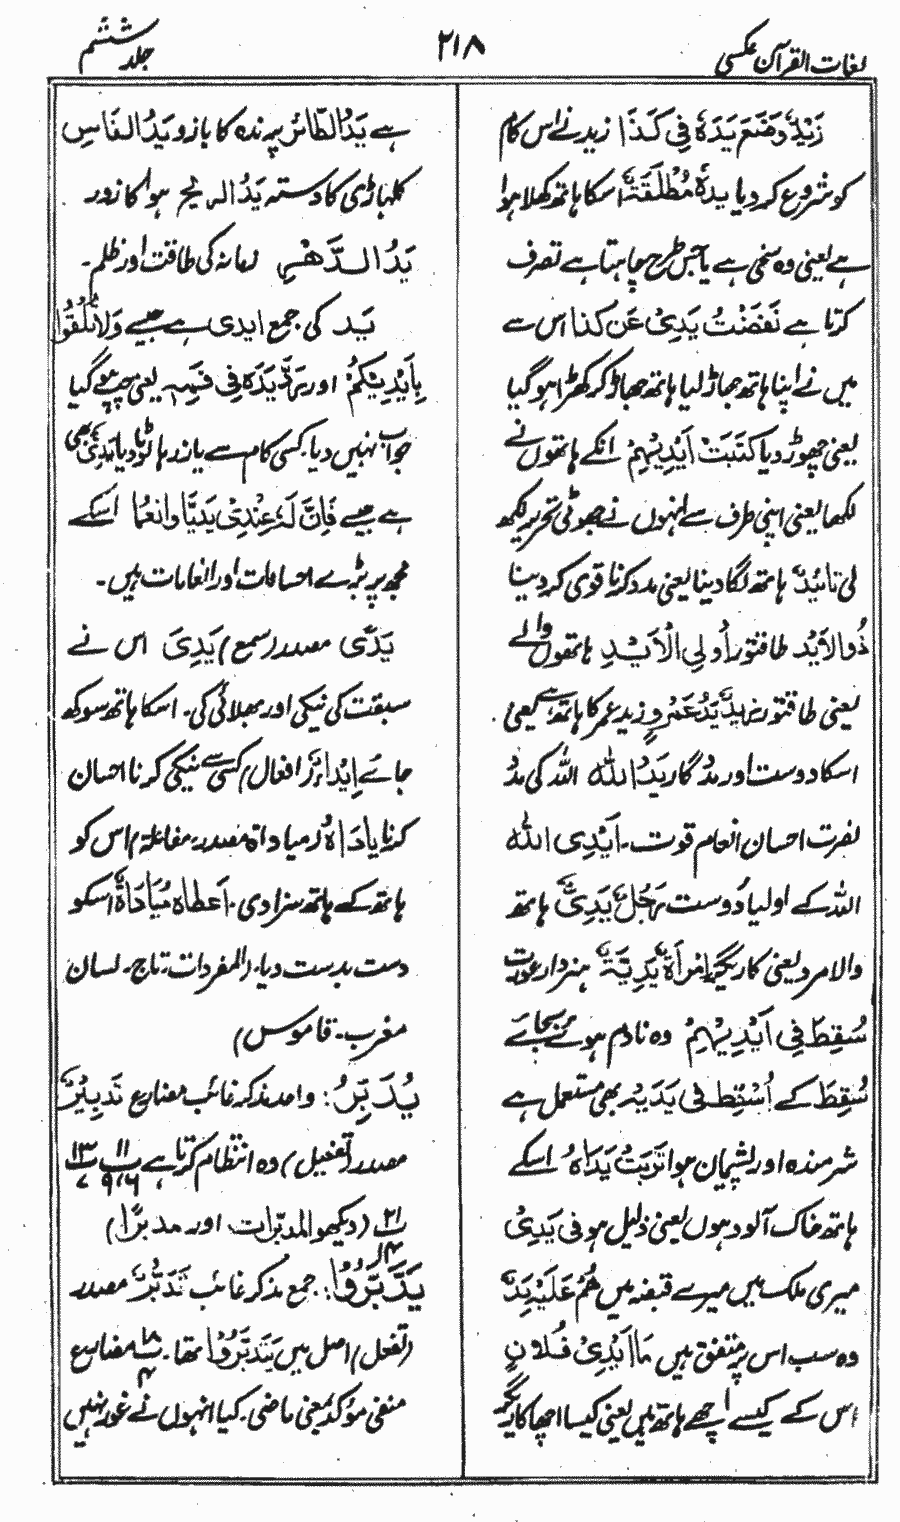 لغات القرآن عکسی
۲۱۸
جلد ششم
زَیْدٌ وَضَعَ یَدَہٗ فِیْ کَذَا زید نے اس کام
کو شروع کر دیا یدہٗ مُطْلَقَۃٌ اسکا ہاتھ کھلا ہوا
ہے یعنی وہ سخی ہے یا جس طرح چاہتا ہے تصرف
کرتا ہے نَفَضْتُ یَدِیْ عَن کذا اس سے
میں نے اپنا ہاتھ جھاڑ لیا ہاتھ جھاڑ کر کھڑا ہو گیا
یعنی چھوڑ دیا کَتَبَتْ اَیْدِیْہِمْ انکے ہاتھوں نے
لکھا یعنی اپنی طرف سے انہوں نے جھوٹی تحریر لکھ
لی تائید ہاتھ لگا دینا یعنی مدد کرنا قوی کر دینا
ذُوالاَیْدِ طاقتور اُولِی الْاَیْدِ ہاتھوں والے
یعنی طاقتور یَدُ عَمْرٍو زید عمر کا ہاتھ ہے یعنی
اسکا دوست اور مدد گار یَدُ اللہ اللہ کی مدد
نصرت احسان انعام قوت۔ اَیْدِی اللہ
اللہ کے اولیاء دوست رَجُلٌ یَدِیٌّ ہاتھ
والا مرد یعنی کاریگر اِمْرَأَۃٌ یَدِیَّۃٌ ہنردار عورت
سُقِطَ فِی اَیْدِیْہِمْ وہ نادم ہوئے بجائے
سُقِطَ کے اُسْقِطَ فی یَدَیْہِ بھی مستعمل ہے
شرمندہ اور پشیمان ہوا تَرِبَتْ یَدَاہُ اسکے
ہاتھ خاک آلود ہوں یعنی ذلیل ہو فی یَدِیْ
میری ملک میں میرے قبضہ میں ھُمْ عَلَیْہِ یَدٌ
وہ سب اس پر متفق ہیں مَا اَیْدِیْ فُلَانٍ
اس کے کیسے اچھے ہاتھ ہیں یعنی کیسا اچھا کاریگر
ہے یَدُ الطَّائِرِ پرندہ کا بازو یَدُ الفَاسِ
کلہاڑی کا دستہ یَدُ الریحِ ہوا کا زور
یَدُ الدَّھْرِ زمانہ کی طاقت اور ظلم۔
یَد کی جمع ایدی ہے جیسے وَلَا تُلْقُوْا
بِاَیْدِیْکُمْ اور رَدَّ یَدَہٗ فِی فَمِہٖ یعنی چپ ہو گیا
جواب نہیں دیا۔ کسی کام سے باز رہا لوٹا دیا یَدِیٌّ بھی
ہے جیسے فَاِنَّ لَہٗ عِنْدِیْ یَدِیًّا وانعما اسکے
مجھ پر بڑے احسانات اور انعامات ہیں۔
یَدَّی مصدر (سمع) یَدِیَ اس نے
سبقت کی نیکی اور بھلائی کی۔ اسکا ہاتھ سوکھ
جائے اِیْدَاءٌ (افعال) کسی سے نیکی کرنا احسان
کرنا یَادَاہُ (میاداۃ مصدر۔ مفاعلۃ) اس کو
ہاتھ کے ہاتھ سزا دی۔ اَعطاہ مُیَادَاۃً اسکو
دست بدست دیا۔ (المفردات۔ تاج۔ لسان
مغرب۔ قاموس)
یُدَبِّرُ: واحد مذکر غائب مضارع تَدْبِیْرٌ
مصدر (تفعیل) وہ انتظام کرتا ہے پ ۱۱ ۶، ۹ پ ۱۳ ۷
پ ۲۱ ۱۴ (دیکھو المدبّرات اور مدبرًا)
یَدَّبَّرُوْا: جمع مذکر غائب تَدَبُّرٌ مصدر
(تفعل) اصل میں یَتَدَبَّرُوْا تھا۔ پ ۱۸ ۴ مضارع
منفی مؤکد بمعنی ماضی۔ کیا انہوں نے غور نہیں